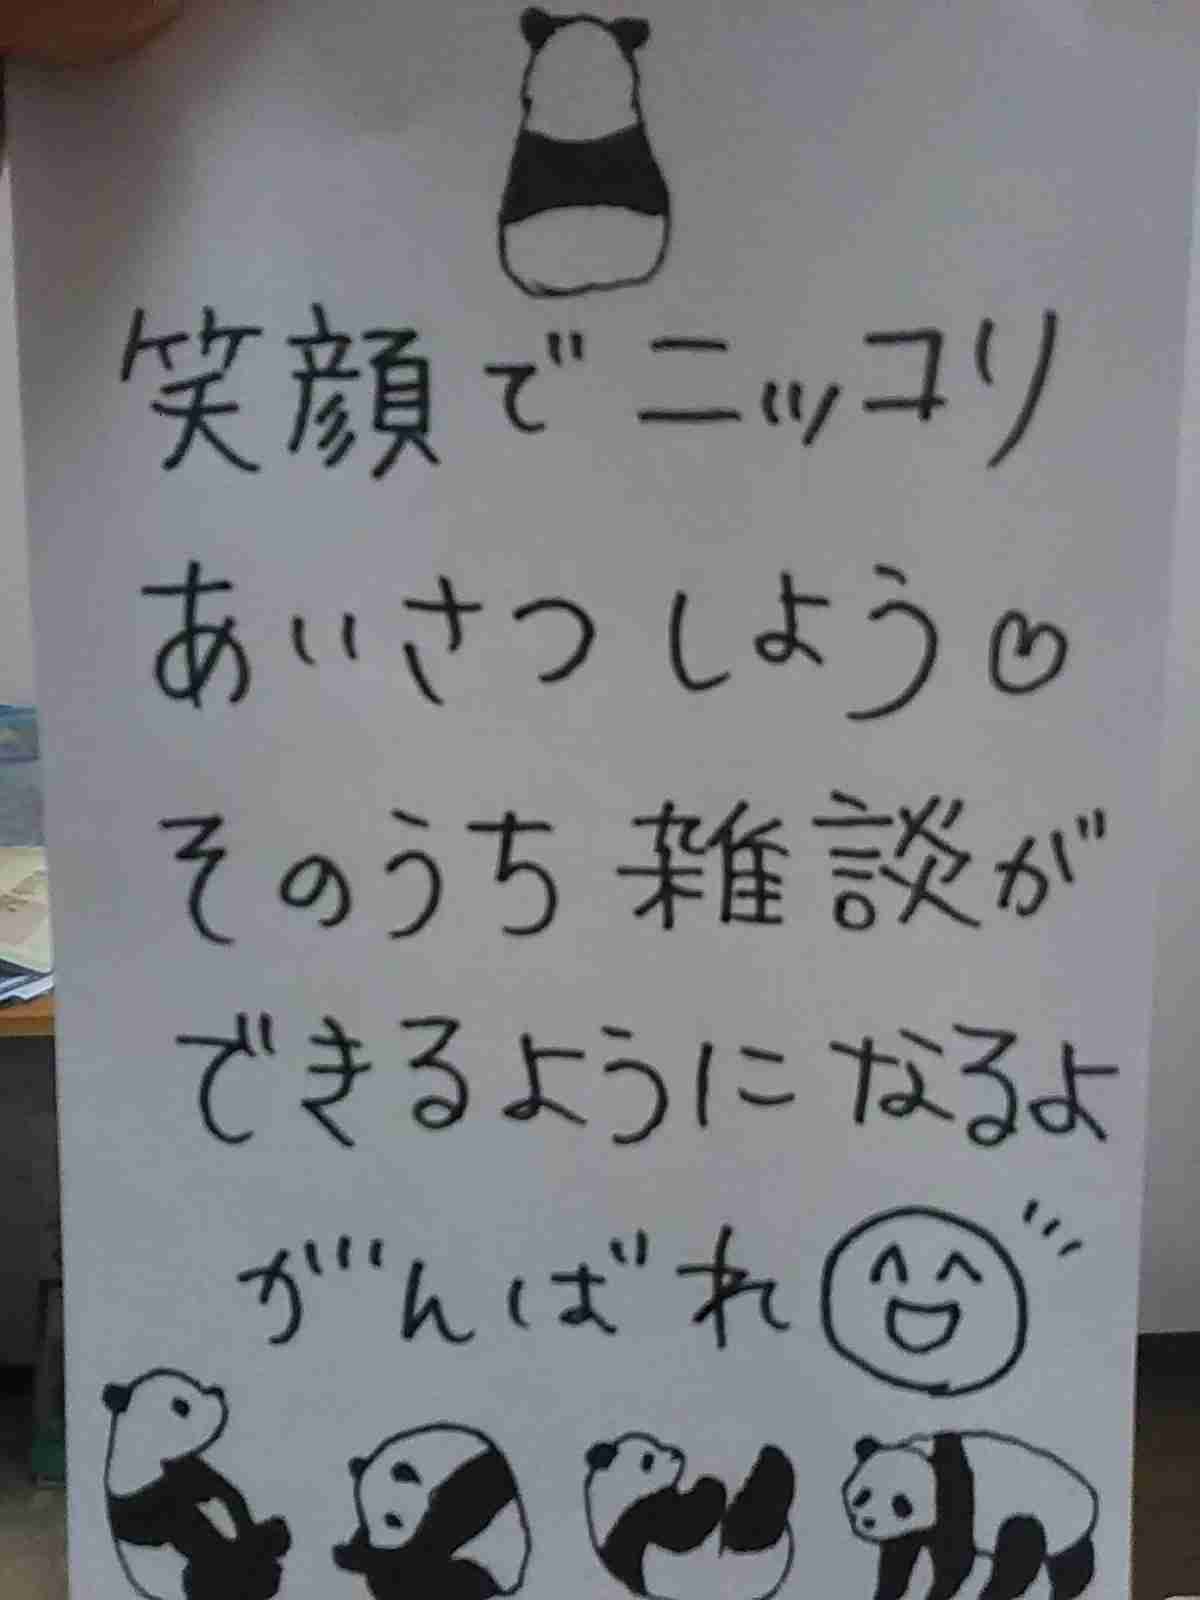 笑顔でニッコリ
あいさつしよう♡
そのうち雑談が
できるようになるよ
がんばれ